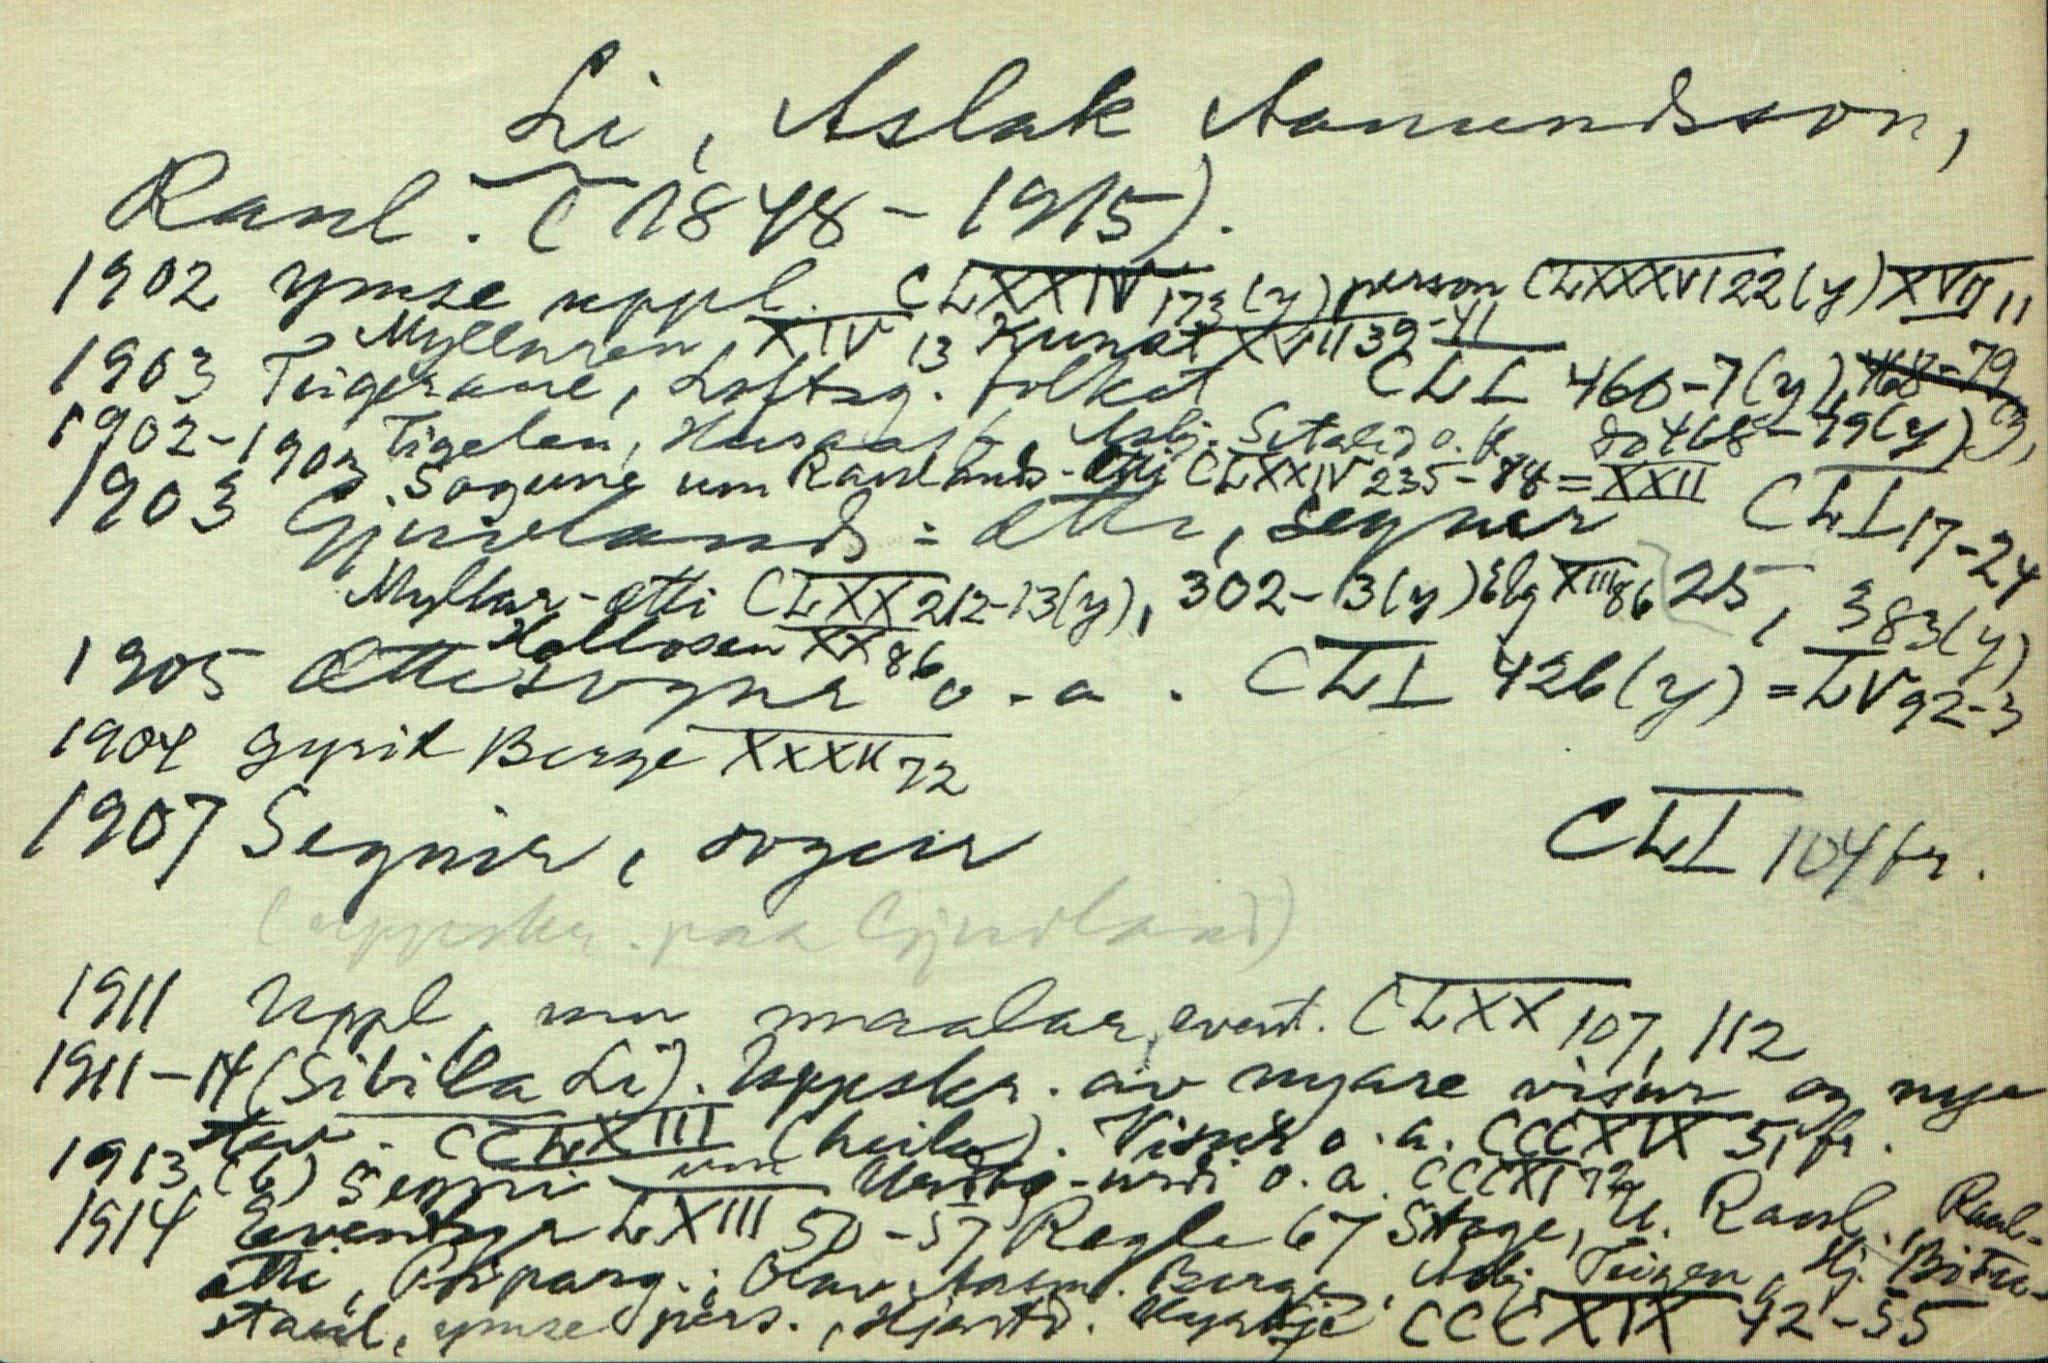 Li, Aslak Aamundsson,
Raul. (1848-1915).
1902 ymse uppl. CLXXIV 173(y) person CLXXXVI 22(y) XVII 11
Myllaren XIV 13 Kunst XVII 39-41
1903 Teigerane, Loftsg. folket CLI 460-7(y), 468-79
1902-1903 Tigelen, Asbj. o. k. do 468-79(y)
Sogune um Raulands-ætti CLXXIV 235-88=XXII
1903 Gjuvlands=ætti, segner CLI 17-24
Myllar-ætti CLXX 212-13(y), 302-3(y) Elg XIII 86 25, 383(y)
Hallvosen XX 86
1905 Ættesogur o.a. CLI 426(y)=LV 92-3
1904 Gyrit Berge XXXX 72
1907 Segnir, sogur CLI 104 fr.
(uppskr. paa Gjuvland)
1911 Uppl, um maalar, event. CLXX 107, 112
1911-14 (Sibilla Li). Uppskr. av nyare visur og nye
stev. CCLXIII (heile). Visur o.a. CCCXIX 51 fr.
1913 (6) Segni um Urdbø-urdi o.a. CCCXI 72
1914 Eventyr LXIII 50-57 Regle 67 Stoge, U. Raul., Raul-
ætti, ; Olav Aasm. Berge, Asbj. Teigen, Hj. Bitu-
staul, ymse pers., Hjartd. Kyrkje CCCXIX 42-55